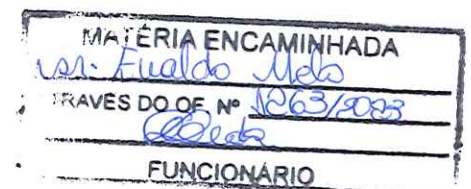 MATÉRIA ENCAMINHADA
Sr. Eualdo Melo
TRAVÉS DO OF. Nº 1263/2023
FUNCIONÁRIO